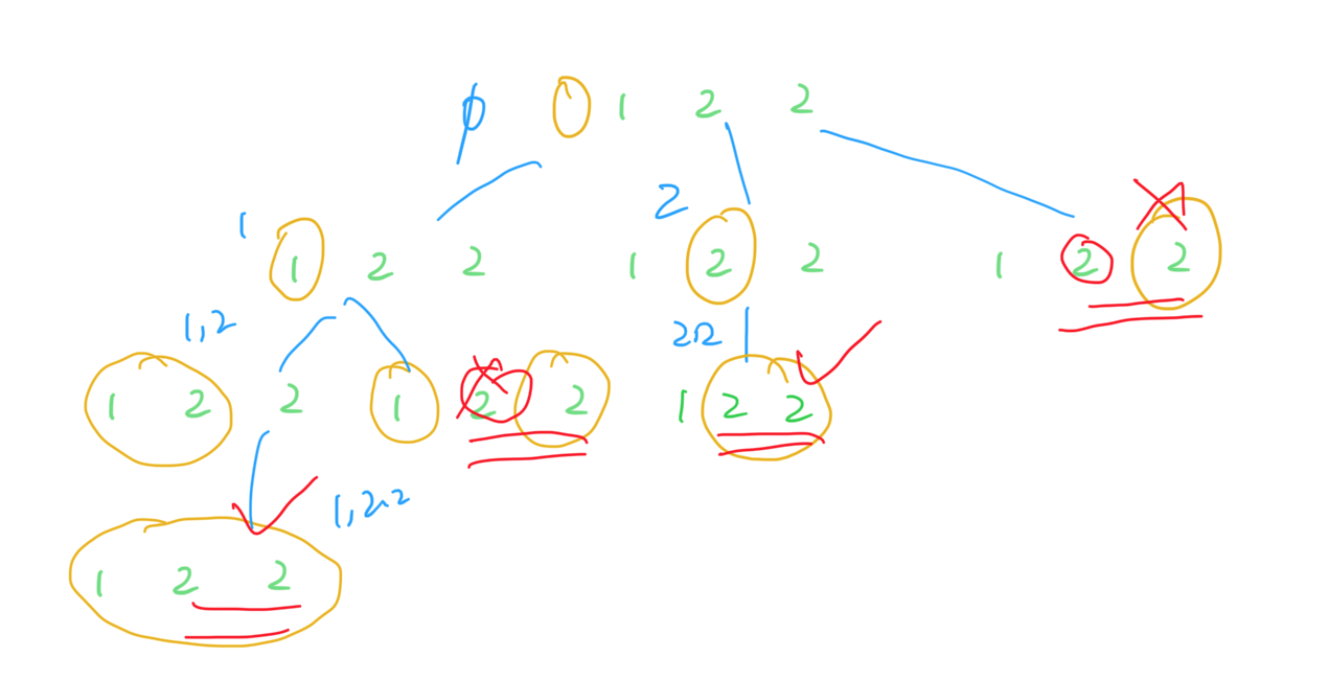 ϕ 1 2 2
1 2
1 2 2 1 2 2 1 2 2
1,2 2 2
1 2 2 1 2 2 1 2 2
1,2,2
1 2 2